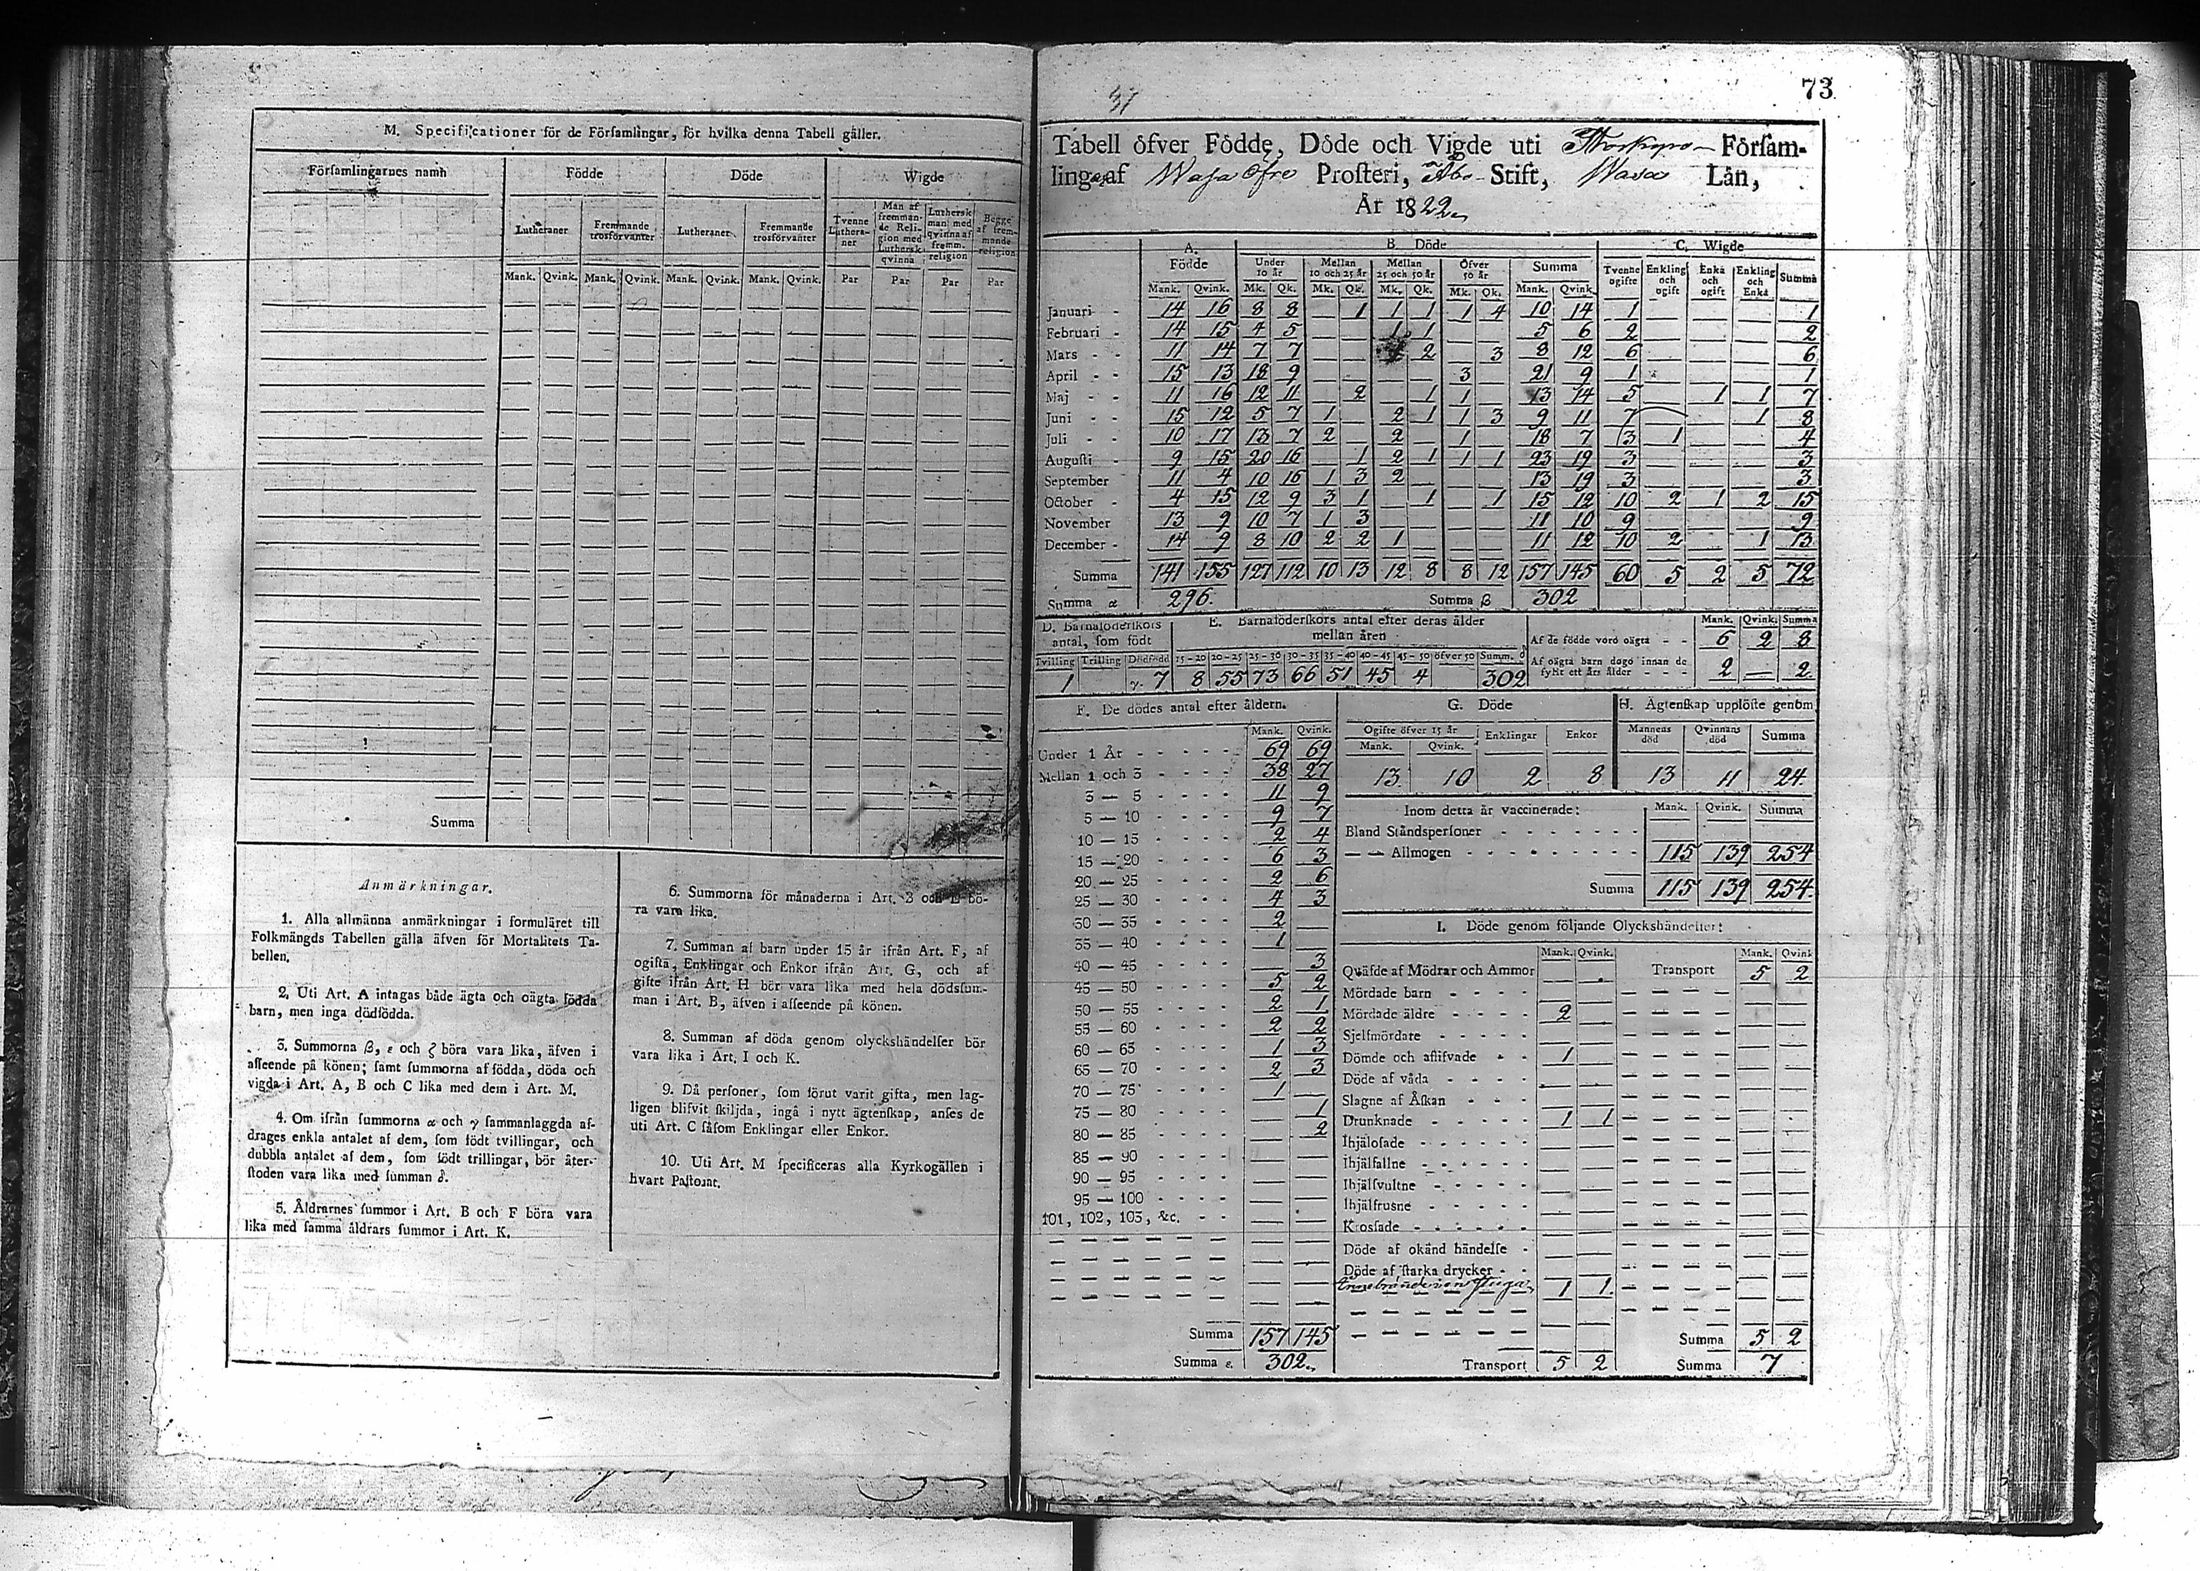 M. Specificationer för de Församlingar, för hvilka denna Tabell gäller.
Församlingarnes namn | Födde | Döde | Wigde
Lutheraner | Fremmande trosförvanter | Lutheraner | Fremmande trosförvanter | Tvenne Lutheraner | Man af fremmande Religion med Luthersk qvinna | Luthersk man med qvinna af fremm. religion | Begge af fremmande religion
Mank. Qvink. Mank. Qvink. Mank. Qvink. Mank. Qvink. Par Par Par Par
Summa
Anmärkningar.
1. Alla allmänna anmärkningar i formuläret till
Folkmängds Tabellen gälla äfven för Mortalitets Ta-
bellen.
2. Uti Art. A intagas både ägta och oägta födda
barn, men inga dödfödda.
3. Summorna ß, ε och ζ böra vara lika, äfven i
afseende på könen; samt summorna af födda, döda och
vigda i Art. A, B och C lika med dem i Art. M.
4. Om ifrån summorna α och γ sammanlaggda af-
drages enkla antalet af dem, som födt tvillingar, och
dubbla antalet af dem, som födt trillingar, bör åter-
stoden vara lika med summan δ.
5. Åldrarnes summor i Art. B och F böra vara
lika med samma åldrars summor i Art. K.
6. Summorna för månaderna i Art. 3 och L bö-
ra vara lika.
7. Summan af barn under 15 år ifrån Art. F, af
ogifta, Enklingar och Enkor ifrån Art. G, och af
gifte ifrån Art. H bör vara lika med hela dödssum-
man i Art. B, äfven i afseende på könen.
8. Summan af döda genom olyckshändelser bör
vara lika i Art. I och K.
9. Då personer, som förut varit gifta, men lag-
ligen blifvit skiljda, ingå i nytt ägtenskap, anses de
uti Art. C såsom Enklingar eller Enkor.
10. Uti Art. M specificeras alla Kyrkogällen i
hvart Pastorat.
37
73
Tabell öfver Födde, Döde och Vigde uti Storkyro Försam-
ling af Wasa öfre Prosteri, Åbo Stift, Wasa Län,
År 1822
A. Födde | B. Döde | C. Wigde
Under 10 år | Mellan 10 och 25 år | Mellan 25 och 50 år | Öfver 50 år | Summa | Tvenne ogifte | Enkling och ogift | Enka och ogift | Enkling och Enka | Summa
Mank. Qvink. Mk. Qk. Mk. Qk. Mk. Qk. Mk. Qk. Mank. Qvink.
Januari 14 16 8 8 — 1 1 1 1 4 10 14 1 — — — 1
Februari 14 15 4 5 — — 1 1 — — 5 6 2 — — — 2
Mars 11 14 7 7 — — 1 2 — 3 8 12 6 — — — 6
April 15 13 18 9 — — — — 3 — 21 9 1 — — — 1
Maj 11 16 12 11 — 2 — 1 1 — 13 14 5 — 1 1 7
Juni 15 12 5 7 1 — 2 1 1 3 9 11 7 — — 1 8
Juli 10 17 13 7 2 — 2 — 1 — 18 7 3 1 — — 4
Augusti 9 15 20 16 — 1 2 1 1 1 23 19 3 — — — 3
September 11 4 10 16 1 3 2 — — — 13 19 3 — — — 3
October 4 15 12 9 3 1 — 1 — 1 15 12 10 2 1 2 15
November 13 9 10 7 1 3 — — — — 11 10 9 — — — 9
December 14 9 8 10 2 2 1 — — — 11 12 10 2 — 1 13
Summa 141 155 127 112 10 13 12 8 8 12 157 145 60 5 2 5 72
Summa α 296. Summa ß 302
D. Barnaföderskors antal, som födt
Tvilling Trilling Dödfödd
1 γ. 7
E. Barnaföderskors antal efter deras ålder
mellan åren
15-20 20-25 25-30 30-35 35-40 40-45 45-50 öfver 50 Summ. δ
8 55 73 66 51 45 4 302
Mank. Qvink. Summa
Af de födde voro oägta - - 6 2 8
Af oägta barn dogo innan de
fyllt ett års ålder - - - 2 — 2
F. De dödes antal efter åldern.
Mank. Qvink.
Under 1 År 69 69
Mellan 1 och 3 38 27
3 — 5 11 9
5 — 10 9 7
10 — 15 2 4
15 — 20 6 3
20 — 25 2 6
25 — 30 4 3
30 — 35 2 —
35 — 40 1 —
40 — 45 — 3
45 — 50 5 2
50 — 55 2 1
55 — 60 2 2
60 — 65 1 3
65 — 70 2 3
70 — 75 1 —
75 — 80 — 1
80 — 85 — 2
85 — 90 — —
90 — 95 — —
95 — 100 — —
101, 102, 103, &c. — —
Summa 157 145
Summa ε. 302
G. Döde
Ogifte öfver 15 år | Enklingar | Enkor
Mank. Qvink.
13 10 2 8
H. Ägtenskap upplöste genom
Mannens död | Qvinnans död | Summa
13 11 24
Inom detta år vaccinerade: Mank. Qvink. Summa
Bland Ståndspersoner — — —
— — Allmogen 115 139 254
Summa 115 139 254
I. Döde genom följande Olyckshändelser:
Mank. Qvink. Mank. Qvink
Qväfde af Mödrar och Ammor — — Transport 5 2
Mördade barn — —
Mördade äldre 2 —
Sjelfmördare — —
Dömde och aflifvade 1 —
Döde af våda — —
Slagne af Åskan — —
Drunknade 1 1
Ihjälofade — —
Ihjälfallne — —
Ihjälsvultne — —
Ihjälfrusne — —
Krossade — —
Döde af okänd händelse — —
Döde af starka drycker — —
Innebrände i en stuga 1 1
Summa 5 2
Transport 5 2 Summa 7